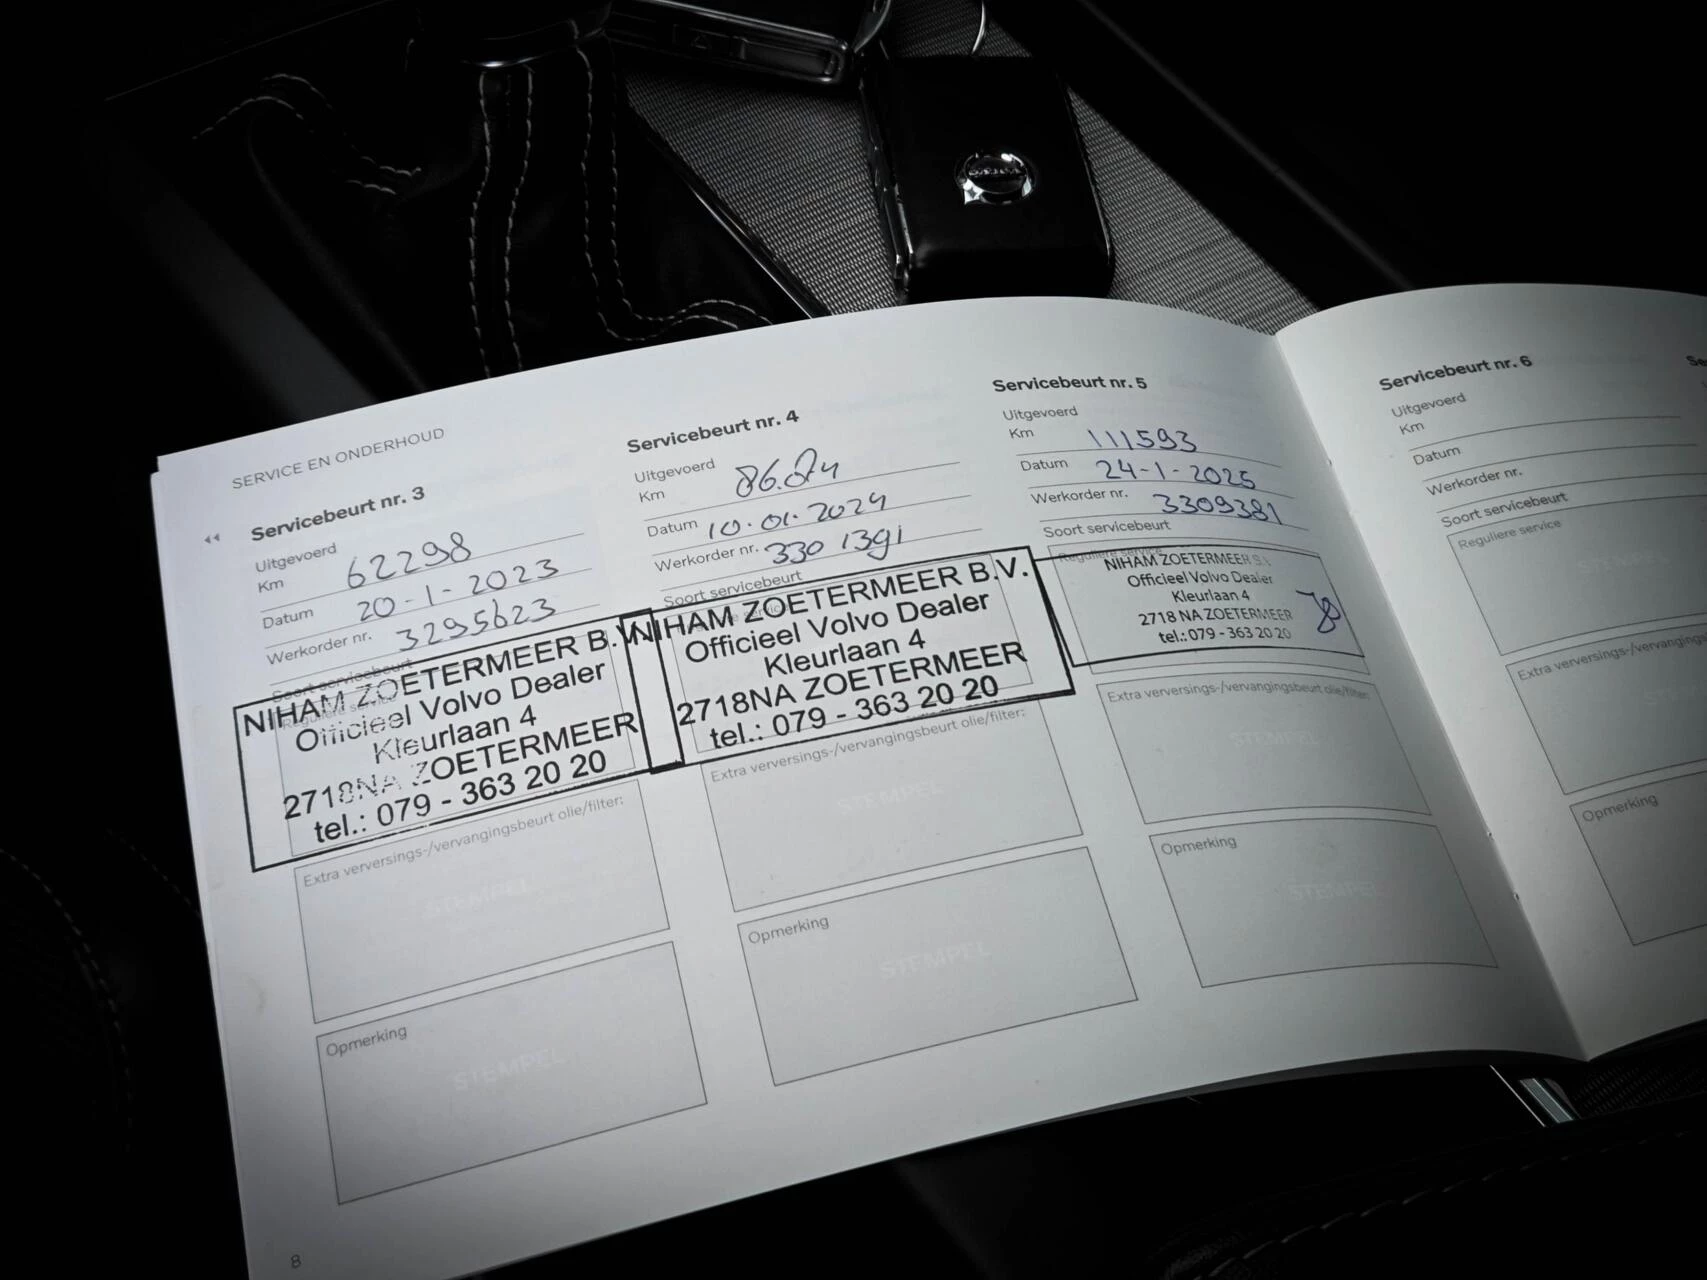 SERVICE EN ONDERHOUD
Servicebeurt nr. 3
Uitgevoerd
Km 62298
Datum 20-1-2023
Werkorder nr. 3295623
Soort servicebeurt
Reguliere service
NIHAM ZOETERMEER B.V.
Officieel Volvo Dealer
Kleurlaan 4
2718NA ZOETERMEER
tel.: 079 - 363 20 20
Extra verversings-/vervangingsbeurt olie/filter:
STEMPEL
Opmerking
STEMPEL
8
Servicebeurt nr. 4
Uitgevoerd
Km
Datum 10.01.2024
Werkorder nr.
Soort servicebeurt
NIHAM ZOETERMEER B.V.
Officieel Volvo Dealer
Kleurlaan 4
2718NA ZOETERMEER
tel.: 079 - 363 20 20
Extra verversings-/vervangingsbeurt olie/filter:
STEMPEL
Opmerking
STEMPEL
Servicebeurt nr. 5
Uitgevoerd
Km 111593
Datum 24-1-2025
Werkorder nr. 3309381
Soort servicebeurt
Reguliere service
NIHAM ZOETERMEER
Officieel Volvo Dealer
Kleurlaan 4
2718 NA ZOETERMEER
tel.: 079 - 363 20 20
Extra verversings-/vervangingsbeurt olie/filter:
STEMPEL
Opmerking
STEMPEL
Servicebeurt nr. 6
Uitgevoerd
Km
Datum
Werkorder nr.
Soort servicebeurt
Reguliere service
STEMPEL
Extra verversings-/vervangings
Opmerking